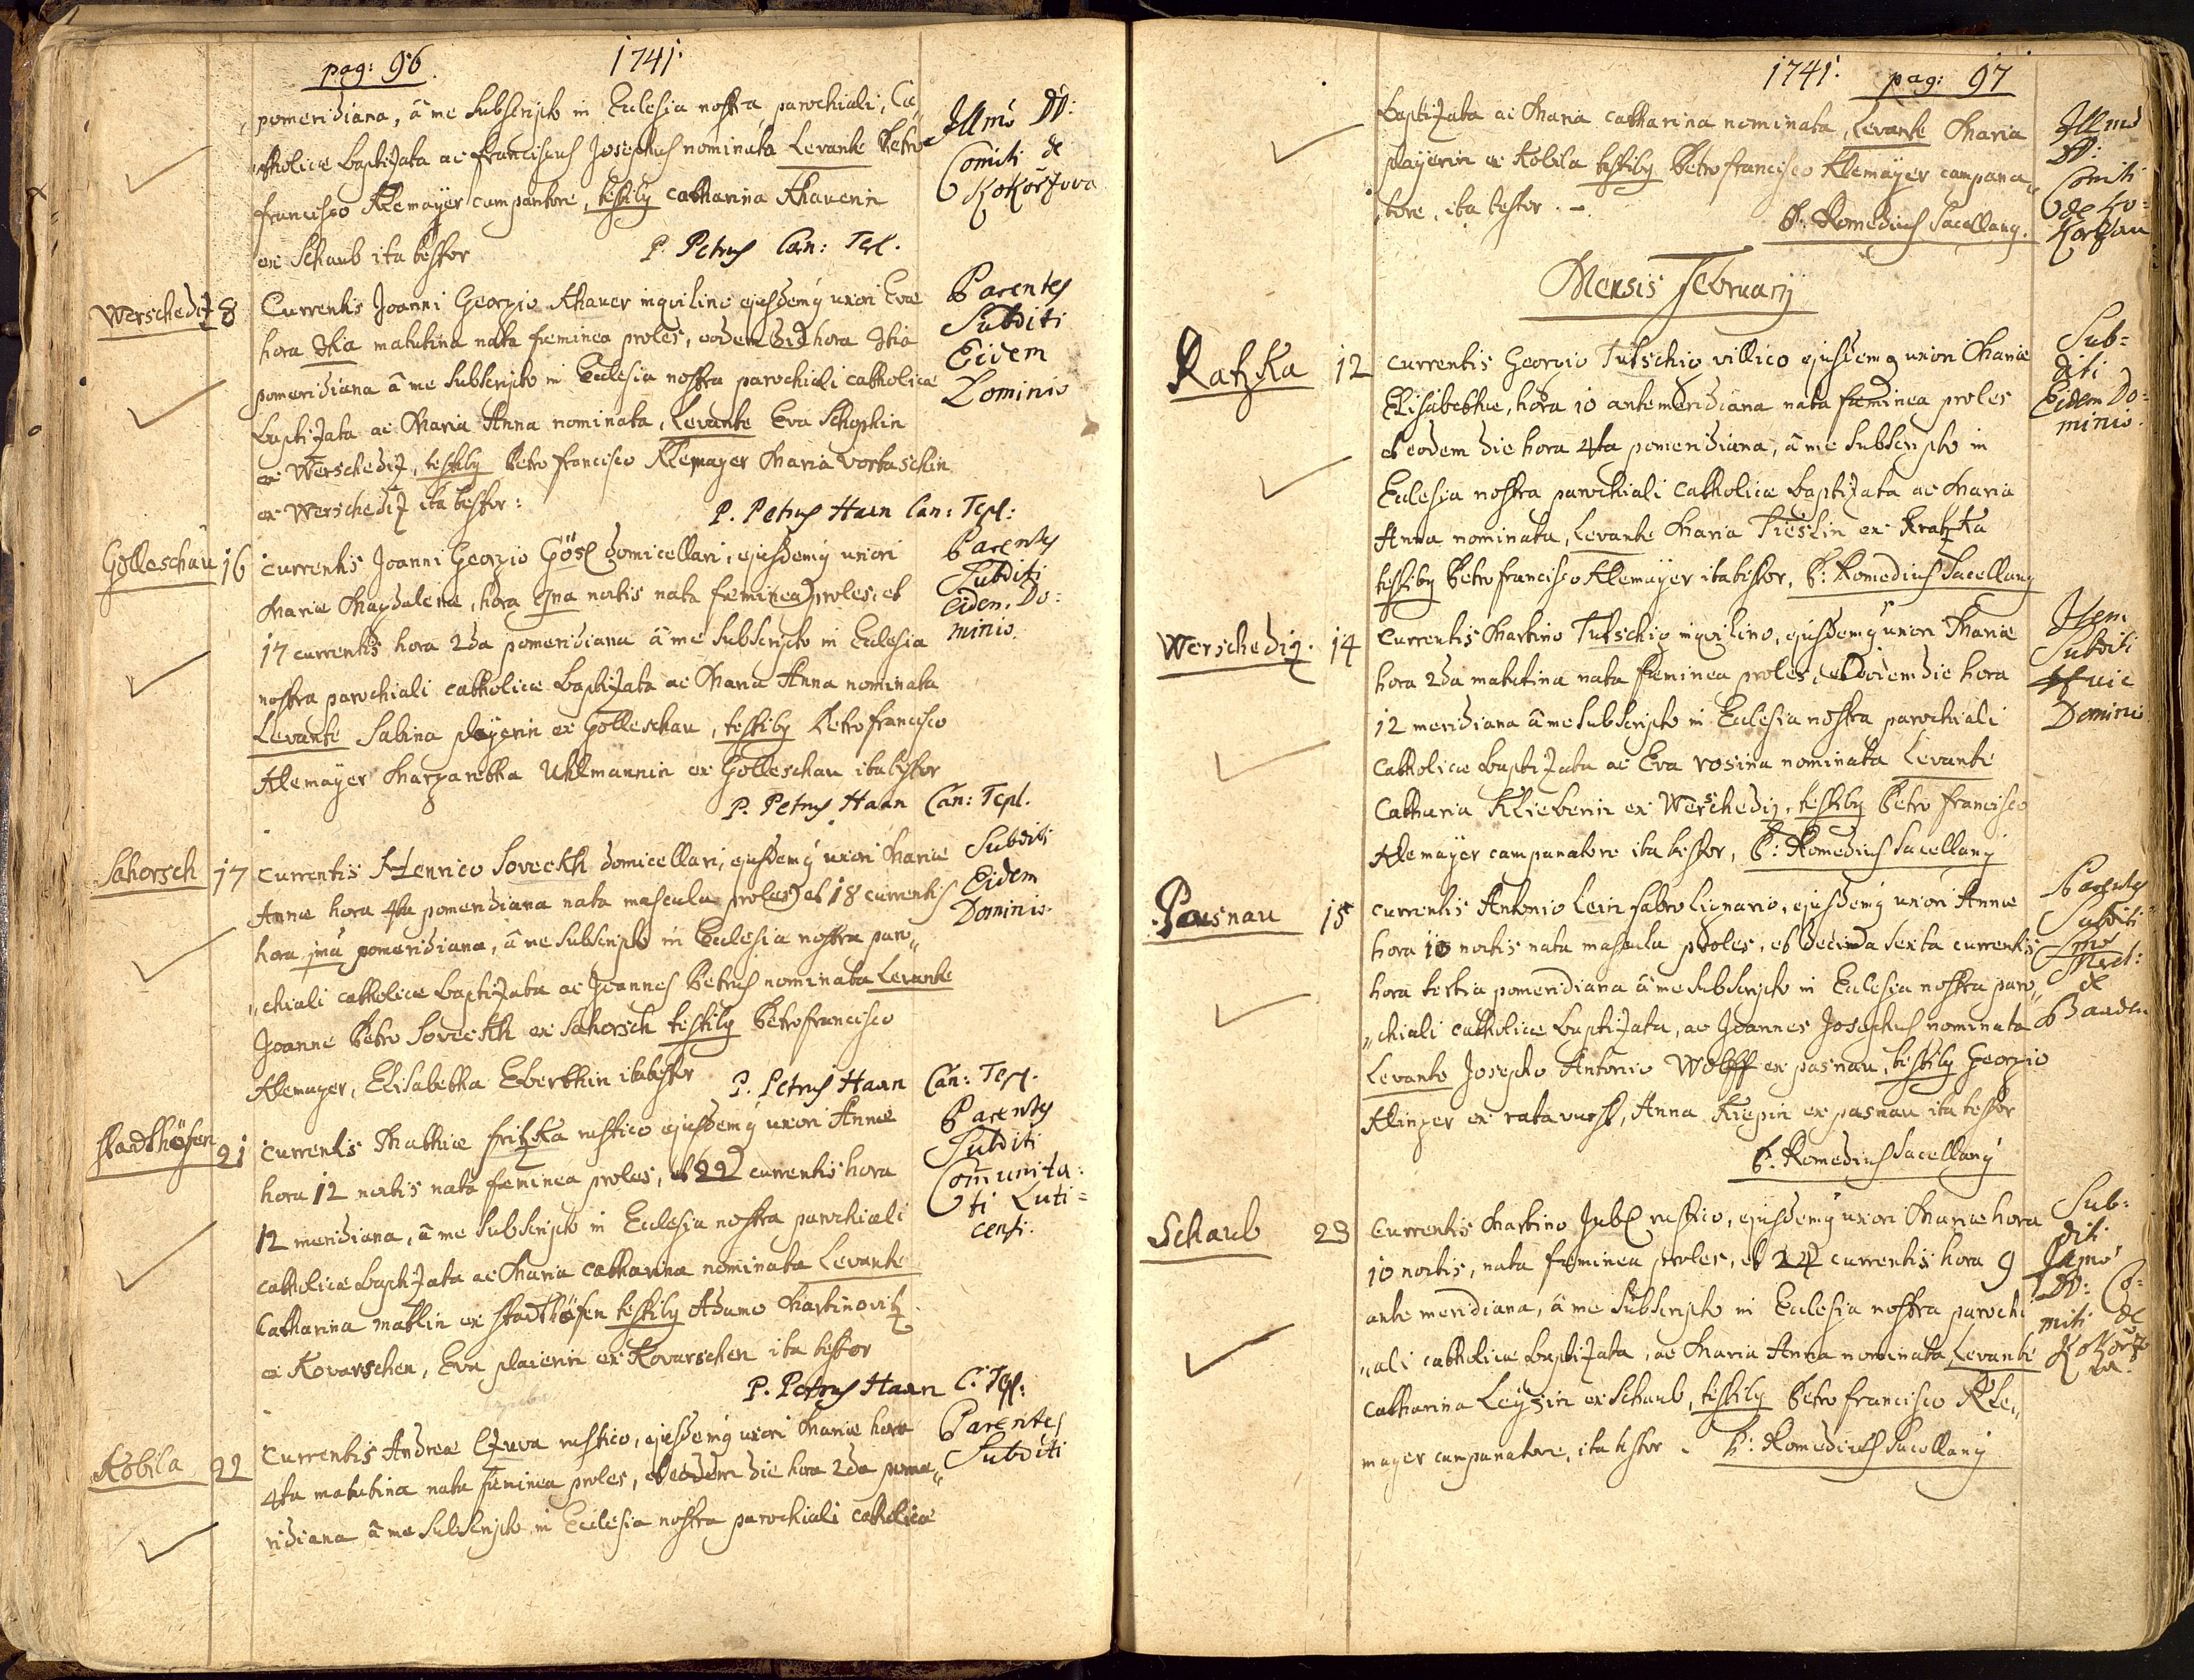 pag: 96. 1741.
pomeridiana, â me subscripto in Eclesia nostra parochiali, Ca„
„tholice baptizata ac Franciscus Josephus nominata Levante Petro
Francisco Klemayer campantore, testibq Catharina Khauerin
ex Schaub ita testor
P. Petrus Can: Tepl.
Illmo DD:
Comiti de
Kokorzova
Werschediz 8
Currentis Joanni Georgio Khauer inqvilino ejusdemq uxori Evæ
hora 3tia matutina nata fæminea proles, eodem die hora 3tia
pomeridiana â me subscripto in Eclesia nostra parochiali catholice
baptizata ac Maria Anna nominata, Levante Eva Schopkin
ex Werschediz, testibq Petro Francisco Klemayer Maria Vortaschin
ex Werschediz ita testor:
P. Petrus Haan Can: Tepl:
Parentes
Subditi
Eidem
Dominio
Golleschau 16
Currentis Joanni Georgio Gösl domicellari, ejusdemq uxori
Mariæ Magdalenæ, hora 9na noctis nata fæminea proles, et
17 currentis hora 2da pomeridiana â me subscripto in Eclesia
nostra parochiali catholice baptizata ac Maria Anna nominata
Levante Sabina playerin ex Golleschau, testibq Petro Francisco
Klemayer Margaretha Uhlmannin ex Golleschau ita testor
P. Petrus Haan Can: Tepl.
Parentes
Subditi
eidem Do:
minio.
Sahorsch 17
Currentis Henrico Soveckh domicellari, ejusdemq uxori Mariæ
Annæ hora 4ta pomeridiana nata mascula proles, et 18 currentis
hora jma pomeridiana, â me subscripto in Eclesia nostra paro„
„chiali catholice baptizata ac Joannes Petrus nominata Levante
Joanne Petro Soveckh ex Sahorsch testibq Petro Francisco
Klemayer, Elisabetha Eberthin ita testor
P. Petrus Haan Can: Tepl.
Subditi
Eidem
Dominio.
Stadthöfen 21
Currentis Mathiæ Fritzka rustico ejusdemq uxori Annæ
hora 12 noctis nata fæminea proles, et 22 currentis hora
12 meridiana, â me subscripto in Eclesia nostra parochiali
catholice baptizata ac Maria Catharina nominata Levante
Catharina Matlin ex Stadthöfen testibq Adamo Martinovitz
ex Kovarschen, Eva plaierin ex Kovarschen ita testor
P. Petrus Haan C: Tepl:
Parentes
Subditi
Com̄unita:
ti Luti=
censi.
Kobila 22
Currentis Andreæ Czuva rustico, ejusdemq uxori Mariæ hora
4ta matutina nata fæminea proles, et eodem die hora 2da pome„
ridiana â me subscripto in Eclesia nostra parochiali catholice
Parentes
Subditi
1741. pag: 97
baptizata ac Maria Catharina nominata, Levante Maria
playerin ex Kobila testibq Petro Francisco Klemayer campana„
tore, ita testor. –.
P: Romedius Sacellanq.
Illmo
DD:
Comiti
de Ko=
korzau
Mensis Februarij
Ratzka 12
Currentis Georgio Tutschig villico ejusdemq uxori Mariæ
Elisabethæ, hora 10 antemeridiana nata fæminea proles
et eodem die hora 4ta pomeridiana, â me subscripto in
Eclesia nostra parochiali catholice baptizata ac Maria
Anna nominata, Levante Maria Tieslin ex Kratzka
testibq Petro Francisco Klemayer ita testor, P: Romedius Sacellanq
Sub=
diti
Eidem Do=
minio.
Werschediz. 14
Currentis Martino Tutschig inqvilino, ejusdemq uxori Mariæ
hora 2da matutina nata fæminea proles, et eodem die hora
12 meridiana â me subscripto in Eclesia nostra parochiali
Catholice baptizata ac Eva Rosina nominata Levante
Catharia Klieberin ex Werschediz, testibq Petro Francisco
Klemayer campanatore ita testor, P: Romedius Sacellanq
Item
Subditi
Huic
Dominio
Passnau 15
Currentis Antonio Lein fabro lignario, ejusdemq uxori Annæ
hora 10 noctis nata mascula proles, et decima sexta currentis
hora tertia pomeridiana â me subscripto in Eclesia nostra paro„
„chiali catholice baptizata, ac Joannes Josephus nominata
Levante Josepho Antonio Wolfff ex pasnau, testibq Georgio
Klinger ex ratavurst, Anna Kiepin ex pasnau ita testor
P: Romedius Sacellanq
Parentes
Subditi
de
Baaden
Schaub 23
Currentis Martino Jubl rustico, ejusdemq uxori Mariæ hora
10 noctis, nata fæminea proles, et 24 currentis hora 9
ante meridiana, â me subscripto in Eclesia nostra parochi
„ali catholice baptizata, ac Maria Anna nominata, Levante
Catharina Leyzin ex Schaub, testibq Petro Francisco Kle„
mayer campanatore, ita testor. P: Romedius Sacellanq
Sub=
diti
DD: Co=
miti de
Kokorzo
va.